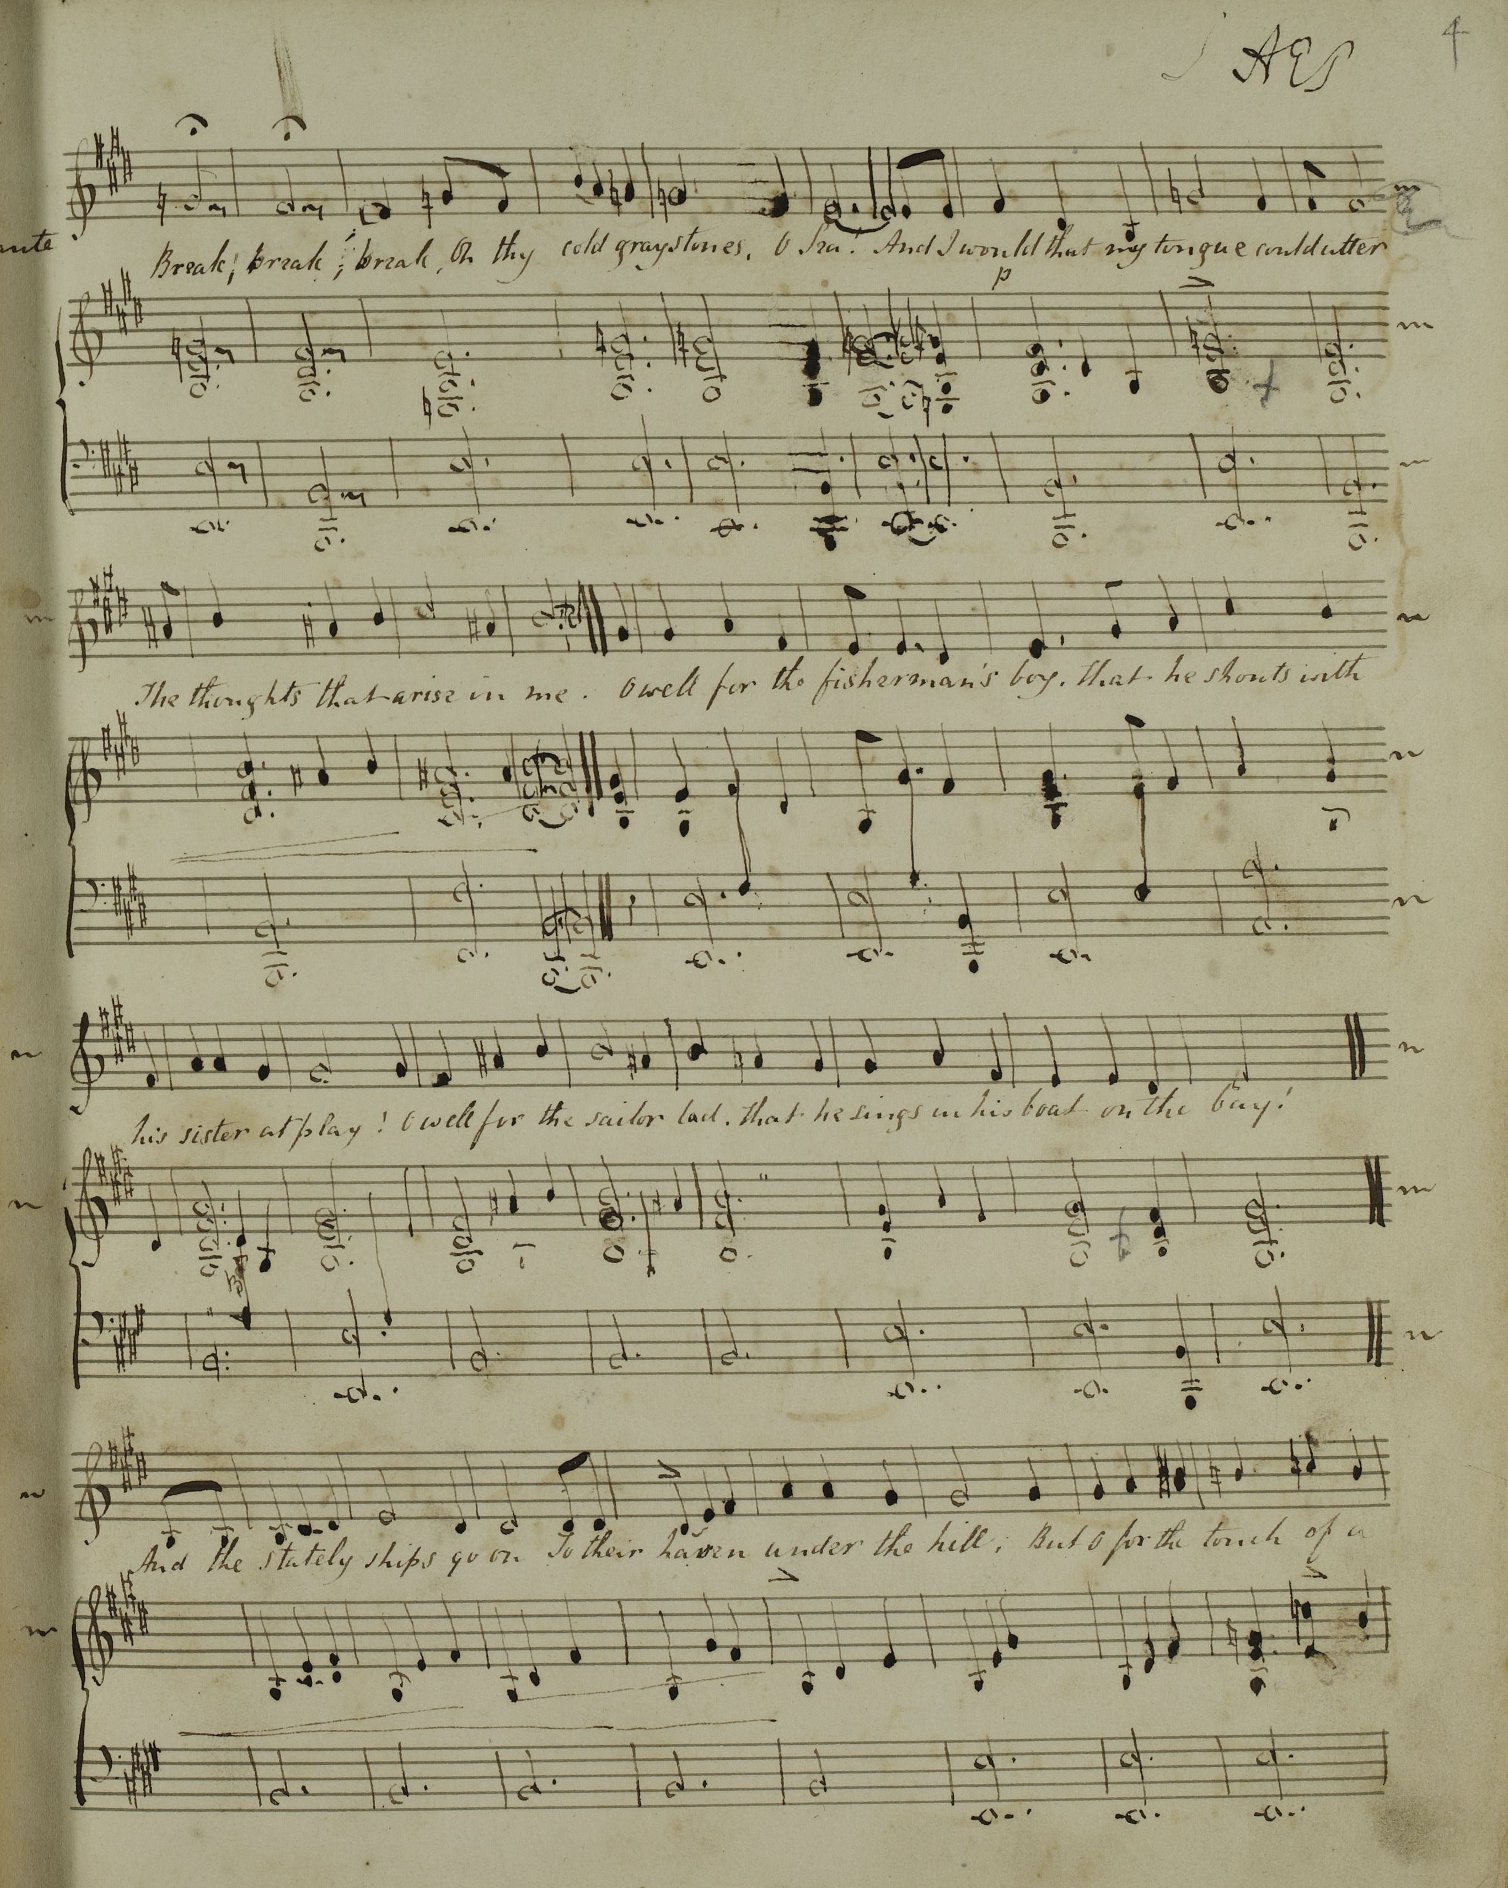 4
AES
Break; break; break, On thy cold gray stones, O Sea! And I would that my tongue could utter
p
The thoughts that arise in me. O well for the fisherman's boy. that he shouts with
his sister at play! O well for the sailor lad. that he sings in his boat on the bay!
And the stately ships go on To their haven under the hill; But O for the touch of a